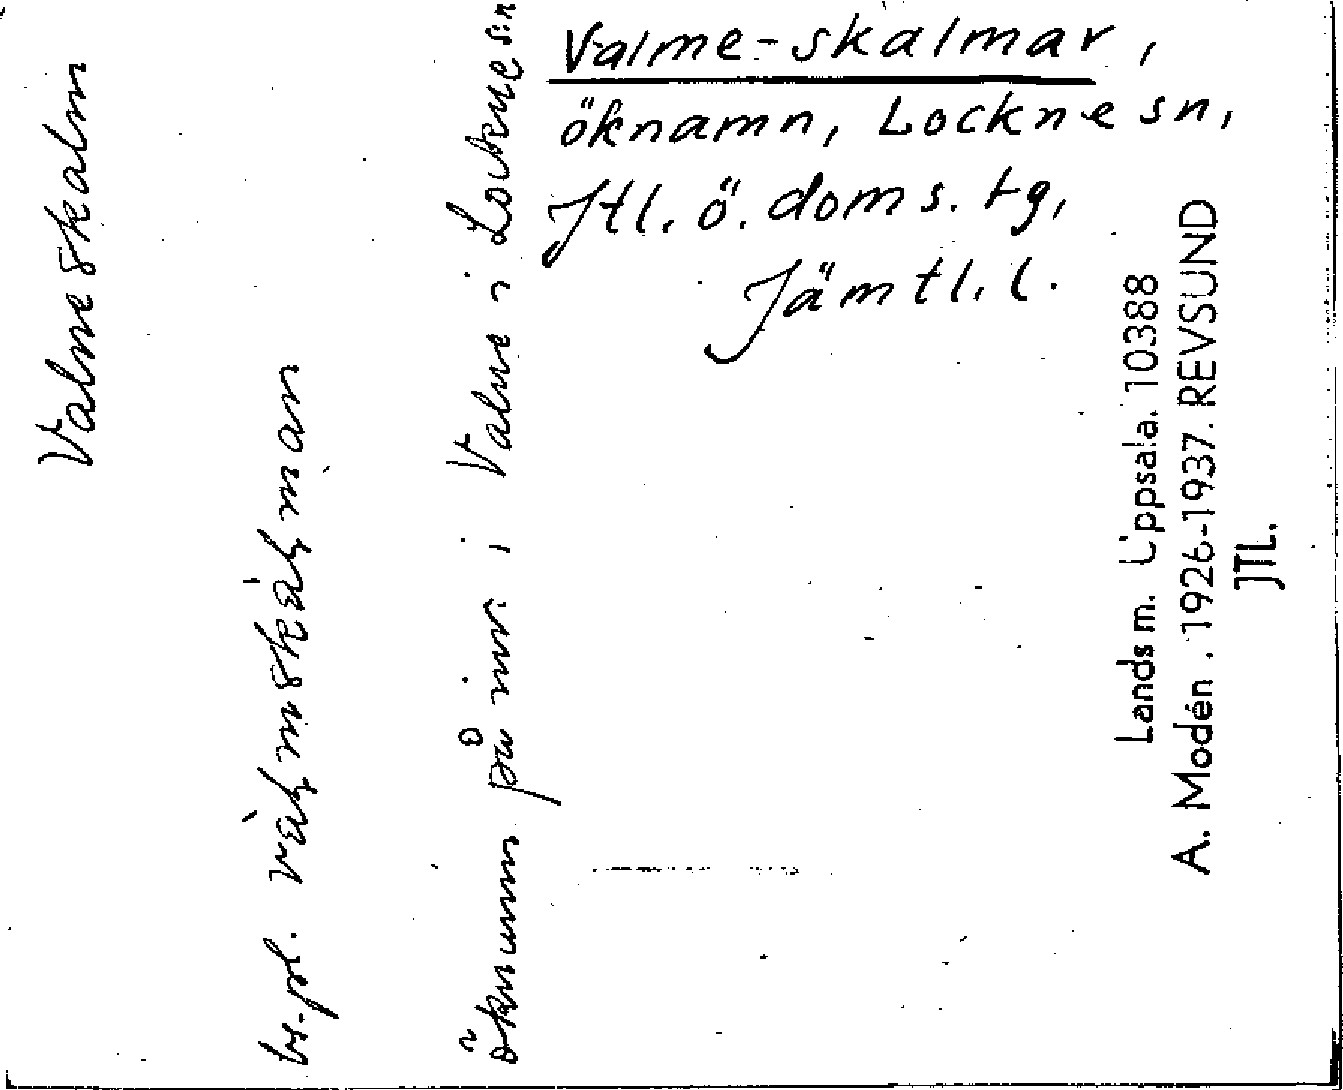 Valme-skalmar,
öknamn, Lockne sn,
Jtl. ö. doms. tg,
Jämtl. l.
Valmeskalm
bs. pl.
öknamn på inv. i Valme i Lockne s:n
Landsm. Uppsala. 10388
A. Modén. 1926-1937. REVSUND
JTL.